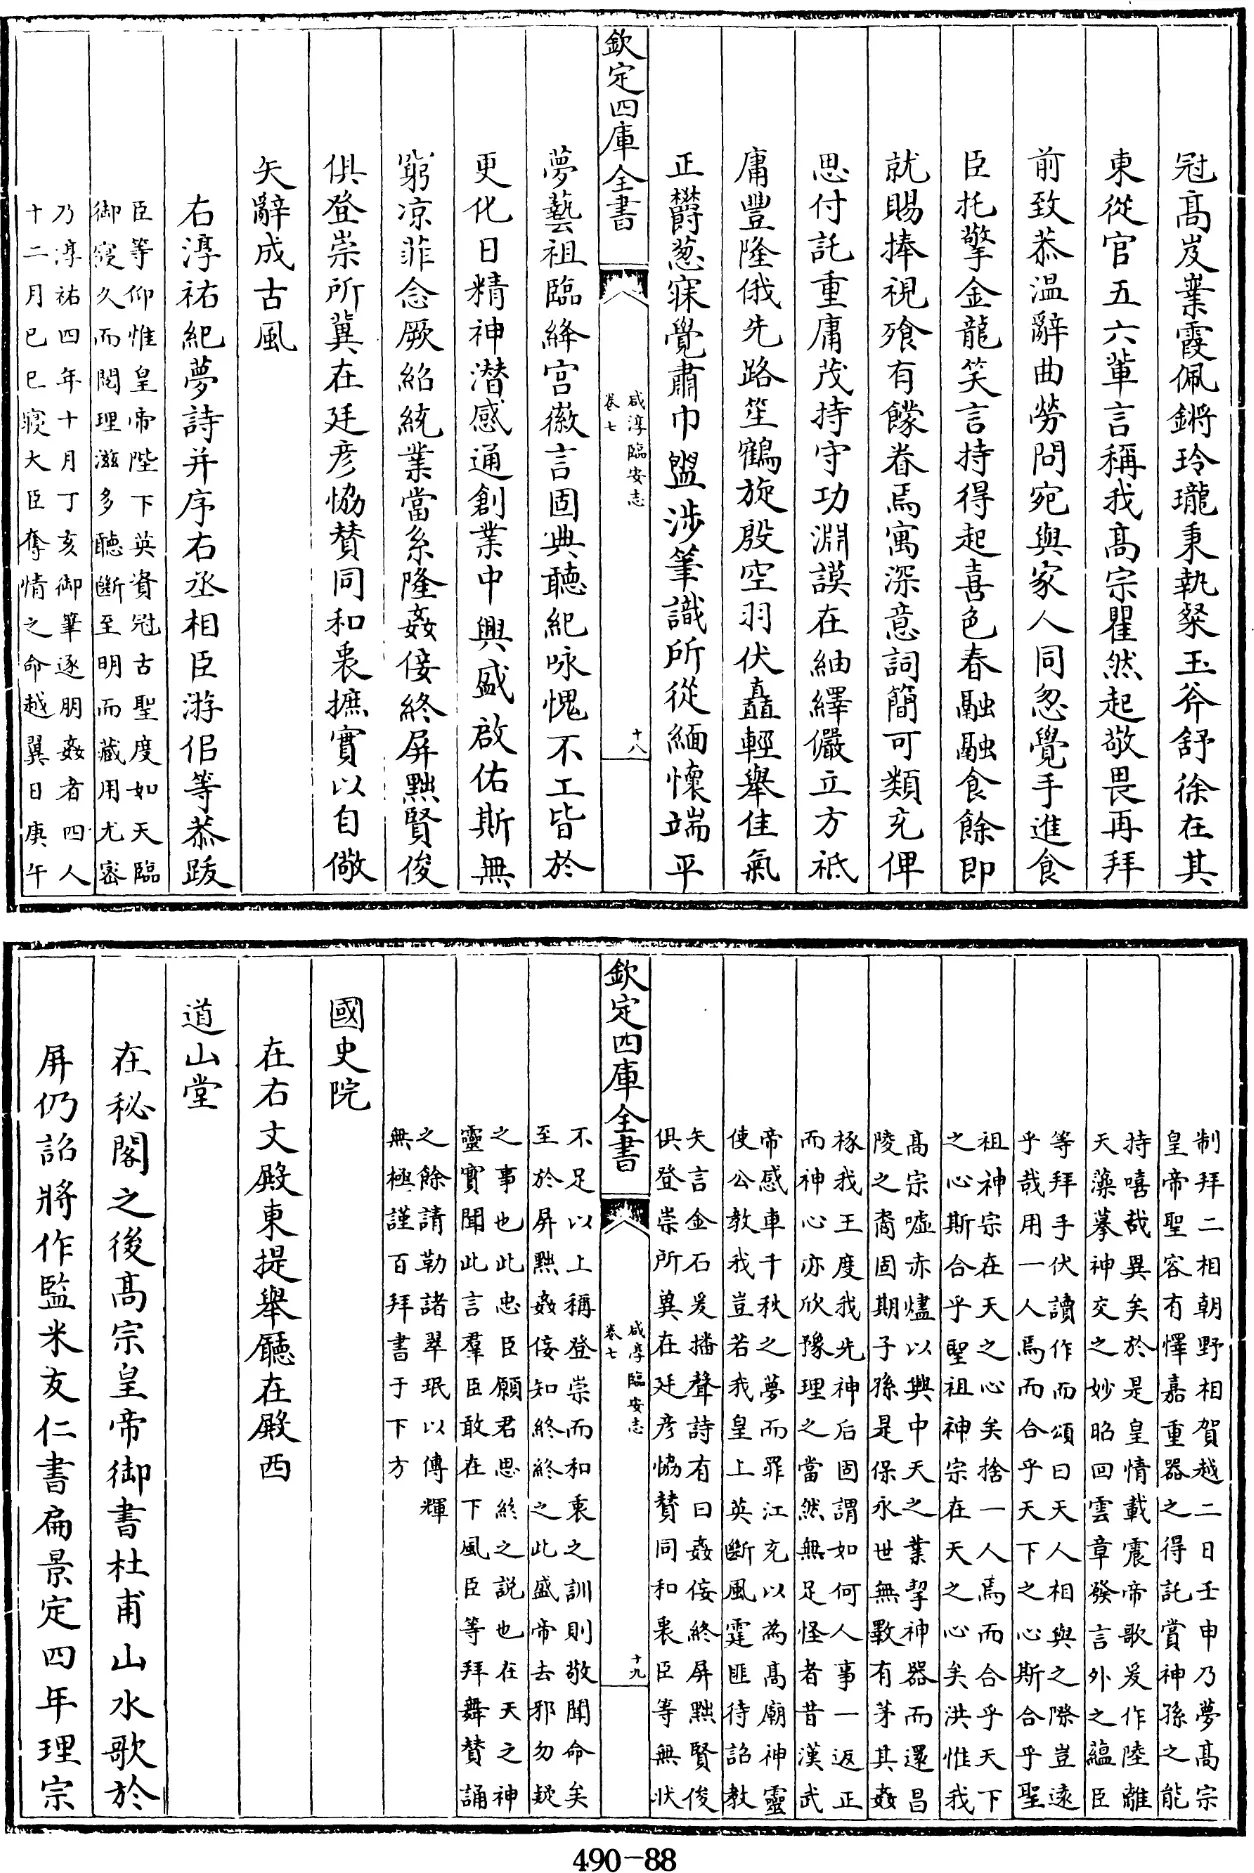 冠髙岌嶪霞佩鏘玲瓏秉執粲玉斧舒徐在其
東從官五六軰言稱我髙宗瞿然起敬畏再拜
前致恭温辭曲勞問宛與家人同忽覺手進食
臣托擎金龍笑言持得起喜色春融融食餘即
就賜捧視飱有饛眷焉寓深意詞簡可類充俾
思付託重庸茂持守功淵謨在紬繹儼立方祗
庸豐隆俄先路笙鶴旋殷空羽伏矗輕舉佳氣
正欝葱寐覺肅巾盥涉筆識所從緬懷端平
欽定四庫全書
咸淳臨安志
卷七
十八
夢藝祖臨絳宫徽言固典聽紀咏愧不工皆於
更化日精神潛感通創業中興盛啟佑斯無
窮凉菲念厥紹統業當系隆姦佞終屏黜賢俊
俱登崇所冀在廷彦恊賛同和衷摭實以自儆
矢辭成古風
右淳祐紀夢詩并序右丞相臣游侣等恭䟦
臣等仰惟皇帝陛下英資冠古聖度如天臨
御寖久而閲理滋多聽斷至明而藏用尤密
乃淳祐四年十月丁亥御筆逐朋姦者四人
十二月已巳寢大臣奪情之命越翼日庚午
制拜二相朝野相賀越二日壬申乃夢髙宗
皇帝聖容有懌嘉重器之得託賞神孫之能
持嘻哉異矣於是皇情載震帝歌爰作陸離
天藻摹神交之妙昭回雲章發言外之藴臣
等拜手伏讀作而頌曰天人相與之際豈逺
乎哉用一人焉而合乎天下之心斯合乎聖
祖神宗在天之心矣捨一人焉而合乎天下
之心斯合乎聖祖神宗在天之心矣洪惟我
髙宗嘘赤爐以興中天之業挈神器而還昌
陵之裔固期子孫是保永世無斁有茅其姦
椓我王度我先神后固謂如何人事一返正
而神心亦欣豫理之當然無足怪者昔漢武
帝感車千秋之夢而罪江充以為髙廟神靈
使公教我豈若我皇上英斷風霆匪待詔教
矢言金石爰播聲詩有曰姦佞終屏黜賢俊
俱登崇所冀在廷彦恊賛同和衷臣等無狀
欽定四庫全書
咸淳臨安志
卷七
十九
不足以上稱登崇而和衷之訓則敬聞命矣
至於屏黜姦佞知終終之此盛帝去邪勿疑
之事也此忠臣願君思終之説也在天之神
靈實聞此言羣臣敢在下風臣等拜舞賛誦
之餘請勒諸翠珉以傳輝
無極謹百拜書于下方
國史院
在右文殿東提舉廳在殿西
道山堂
在秘閣之後髙宗皇帝御書杜甫山水歌於
屏仍詔將作監米友仁書扁景定四年理宗
490-88